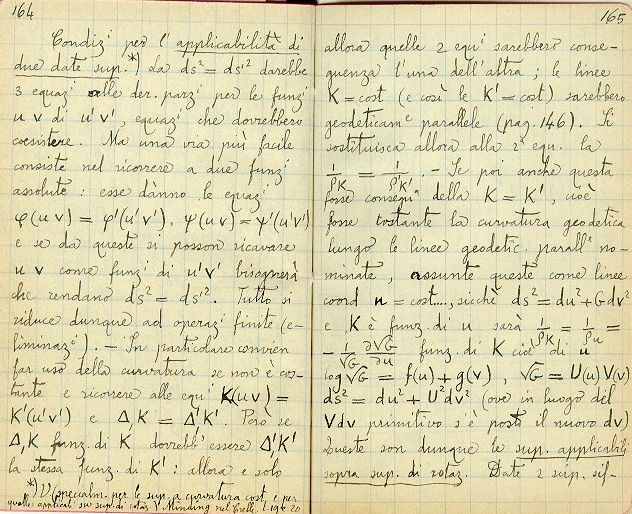 164
Condizⁱ per l'applicabilità di
due date sup.*) da ds² = ds'² darebbe
3 equazⁱ alle der. parzⁱ per le funzⁱ
u v di u' v', equazⁱ che dovrebbero
coesistere. Ma una via più facile
consiste nel ricorrere a due funzⁱ
assolute: esse dànno le equazⁱ
φ(u v) = φ'(u'v'), ψ(u v) = ψ'(u'v')
e se da queste si posson ricavare
u v come funzⁱ di u'v' bisognerà
che rendano ds² = ds'². Tutto si
riduce dunque ad operazⁱ finite (e-
liminazⁱ). – In particolare convien
far uso della curvatura se non è cos-
tante e ricorrere alle equⁱ K(uv) =
K'(u'v') e Δ₁K = Δ₁'K'. Però se
Δ₁K funz. di K dovrebb' essere Δ₁'K'
la stessa funz. di K': allora e solo
*) V. (specialm. per le sup. a curvatura cost. e per
quelle applicabⁱ su sup. di rotazⁱ) Minding nel Crelle t. 19 e 20
165
allora quelle 2 equⁱ sarebbero conse-
guenza l'una dell'altra; le linee
K = cost (e così le K' = cost) sarebbero
geodeticamᵉ parallele (pag. 146). Si
sostituisca allora alla 2ª equ. la
1/ρK = 1/ρ'K'. – Se poi anche questa
fosse conseguᵃ della K = K', cioè
fosse costante la curvatura geodetica
lungo le linee geodetic. parallᵉ no-
minate, assunte queste come linee
coord u = cost...., sicchè ds² = du² + G dv²
e K è funz. di u sarà 1/ρK = 1/ρu =
– 1/√G ∂√G/∂u funz. di K cioè di u
log √G = f(u) + g(v), √G = U(u) V(v)
ds² = du² + U² dv² (ove in luogo del
V dv primitivo s'è posto il nuovo dv)
Queste son dunque le sup. applicabili
sopra sup. di rotaz. Date 2 sup. sif-